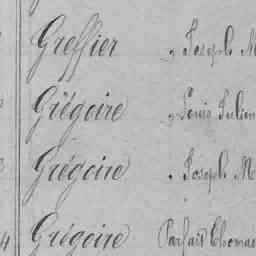 Greffier „ Joseph M
Grégoire „ Louis Julien
Grégoire „ Joseph M
4 Grégoire Parfait Thomas